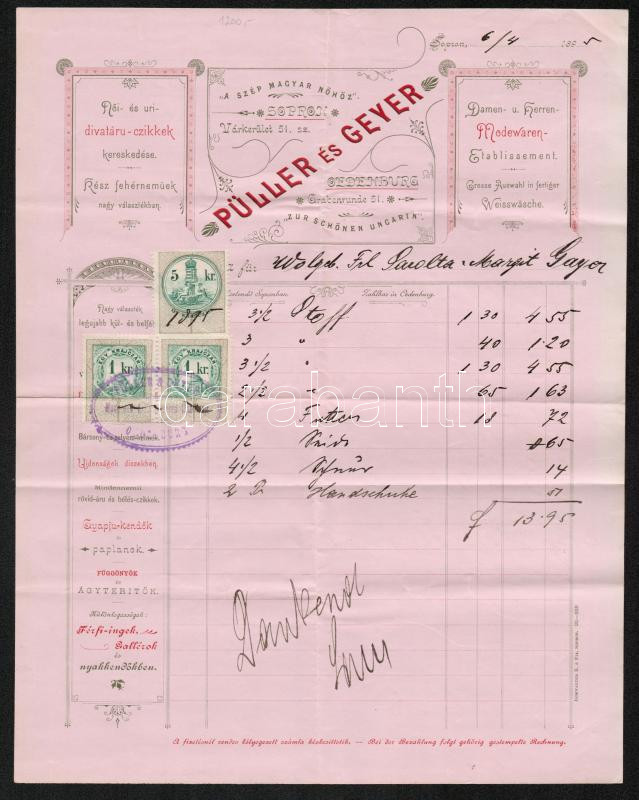 1200,-
Sopron, 6/4 1895
Női- és uri-
divatáru-czikkek
kereskedése.
Kész fehérneműek
nagy választékban.
"A SZÉP MAGYAR NŐHÖZ".
SOPRON
Várkerület 51. sz.
PÜLLER ÉS GEYER
OEDENBURG
Grabenrunde 51.
"ZUR SCHÖNEN UNGARIN".
Damen- u. Herren-
Modewaren-
Etablissement.
Grosse Auswahl in fertiger
Weisswäsche.
für Wolgeb. Frl Sarolta
5 kr.
1895
Sopronban.
Zahlbar in Oedenburg.
Nagy választék
legujabb kül- és belföl
3 1/2 Stoff 1 30 4 55
3 " 40 1·20
3 1/2 " 1 30 4 55
2 1/2 " 65 1 63
4 Futter 18 72
1/2 65
4 1/2 14
2 Handschuhe 51
f 13·95
1 kr.
1 kr.
darabanth
Ujdonságok diszekben.
Mindennemű
rövid-áru és bélés-czikkek.
Gyapju-kendők
és
paplanok.
FÜGGÖNYÖK
és
ÁGYTERITŐK.
Különlegességek:
Férfi-ingek,
Gallérok
és
nyakkendőkben.
Dankend
A fizetésnél rendes bélyegezett számla kézbesittetik. — Bei der Bezahlung folgt gehörig gestempelte Rechnung.